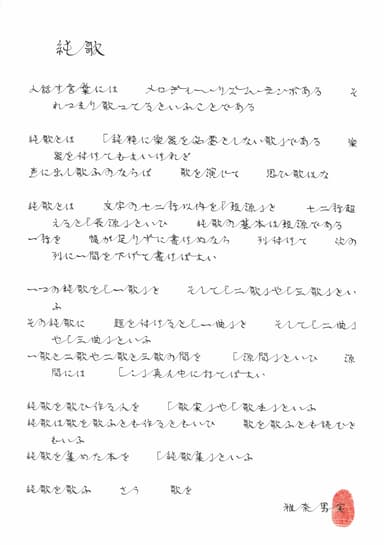 純歌
人話す言葉には　メロディー・リズム・テンポある　そ
れつまり歌ってるといふことである
純歌とは　「純粋に楽器を必要としない歌」である　楽
器を付けてもよいけれど
声に出し歌ふのならば　歌を演じて　思ひ歌はな
純歌とは　文字の七二行以内を「短源」と　七二行超
えると「長源」といひ　純歌の基本は短源である
一行を　幅が足りずに書けぬなら　列付けて　次の
列に一間を下げて書けばよい
一つの純歌を「一歌」を　そして「二歌」や「三歌」とい
ふ
その純歌に　題を付けると「一曲」を　そして「二曲」
や「三曲」といふ
一歌と二歌や二歌と三歌の間を　「源間」といひ　源
間には　「：」真ん中に打てばよい
純歌を歌ひ作る人を　「歌実」や「歌 」といふ
純歌は歌を歌ふとも作るともいひ　歌を歌ふとも読むと
もいふ
純歌を集めた本を　「純歌集」といふ
純歌を歌ふ　さう　歌を
雅 男 実